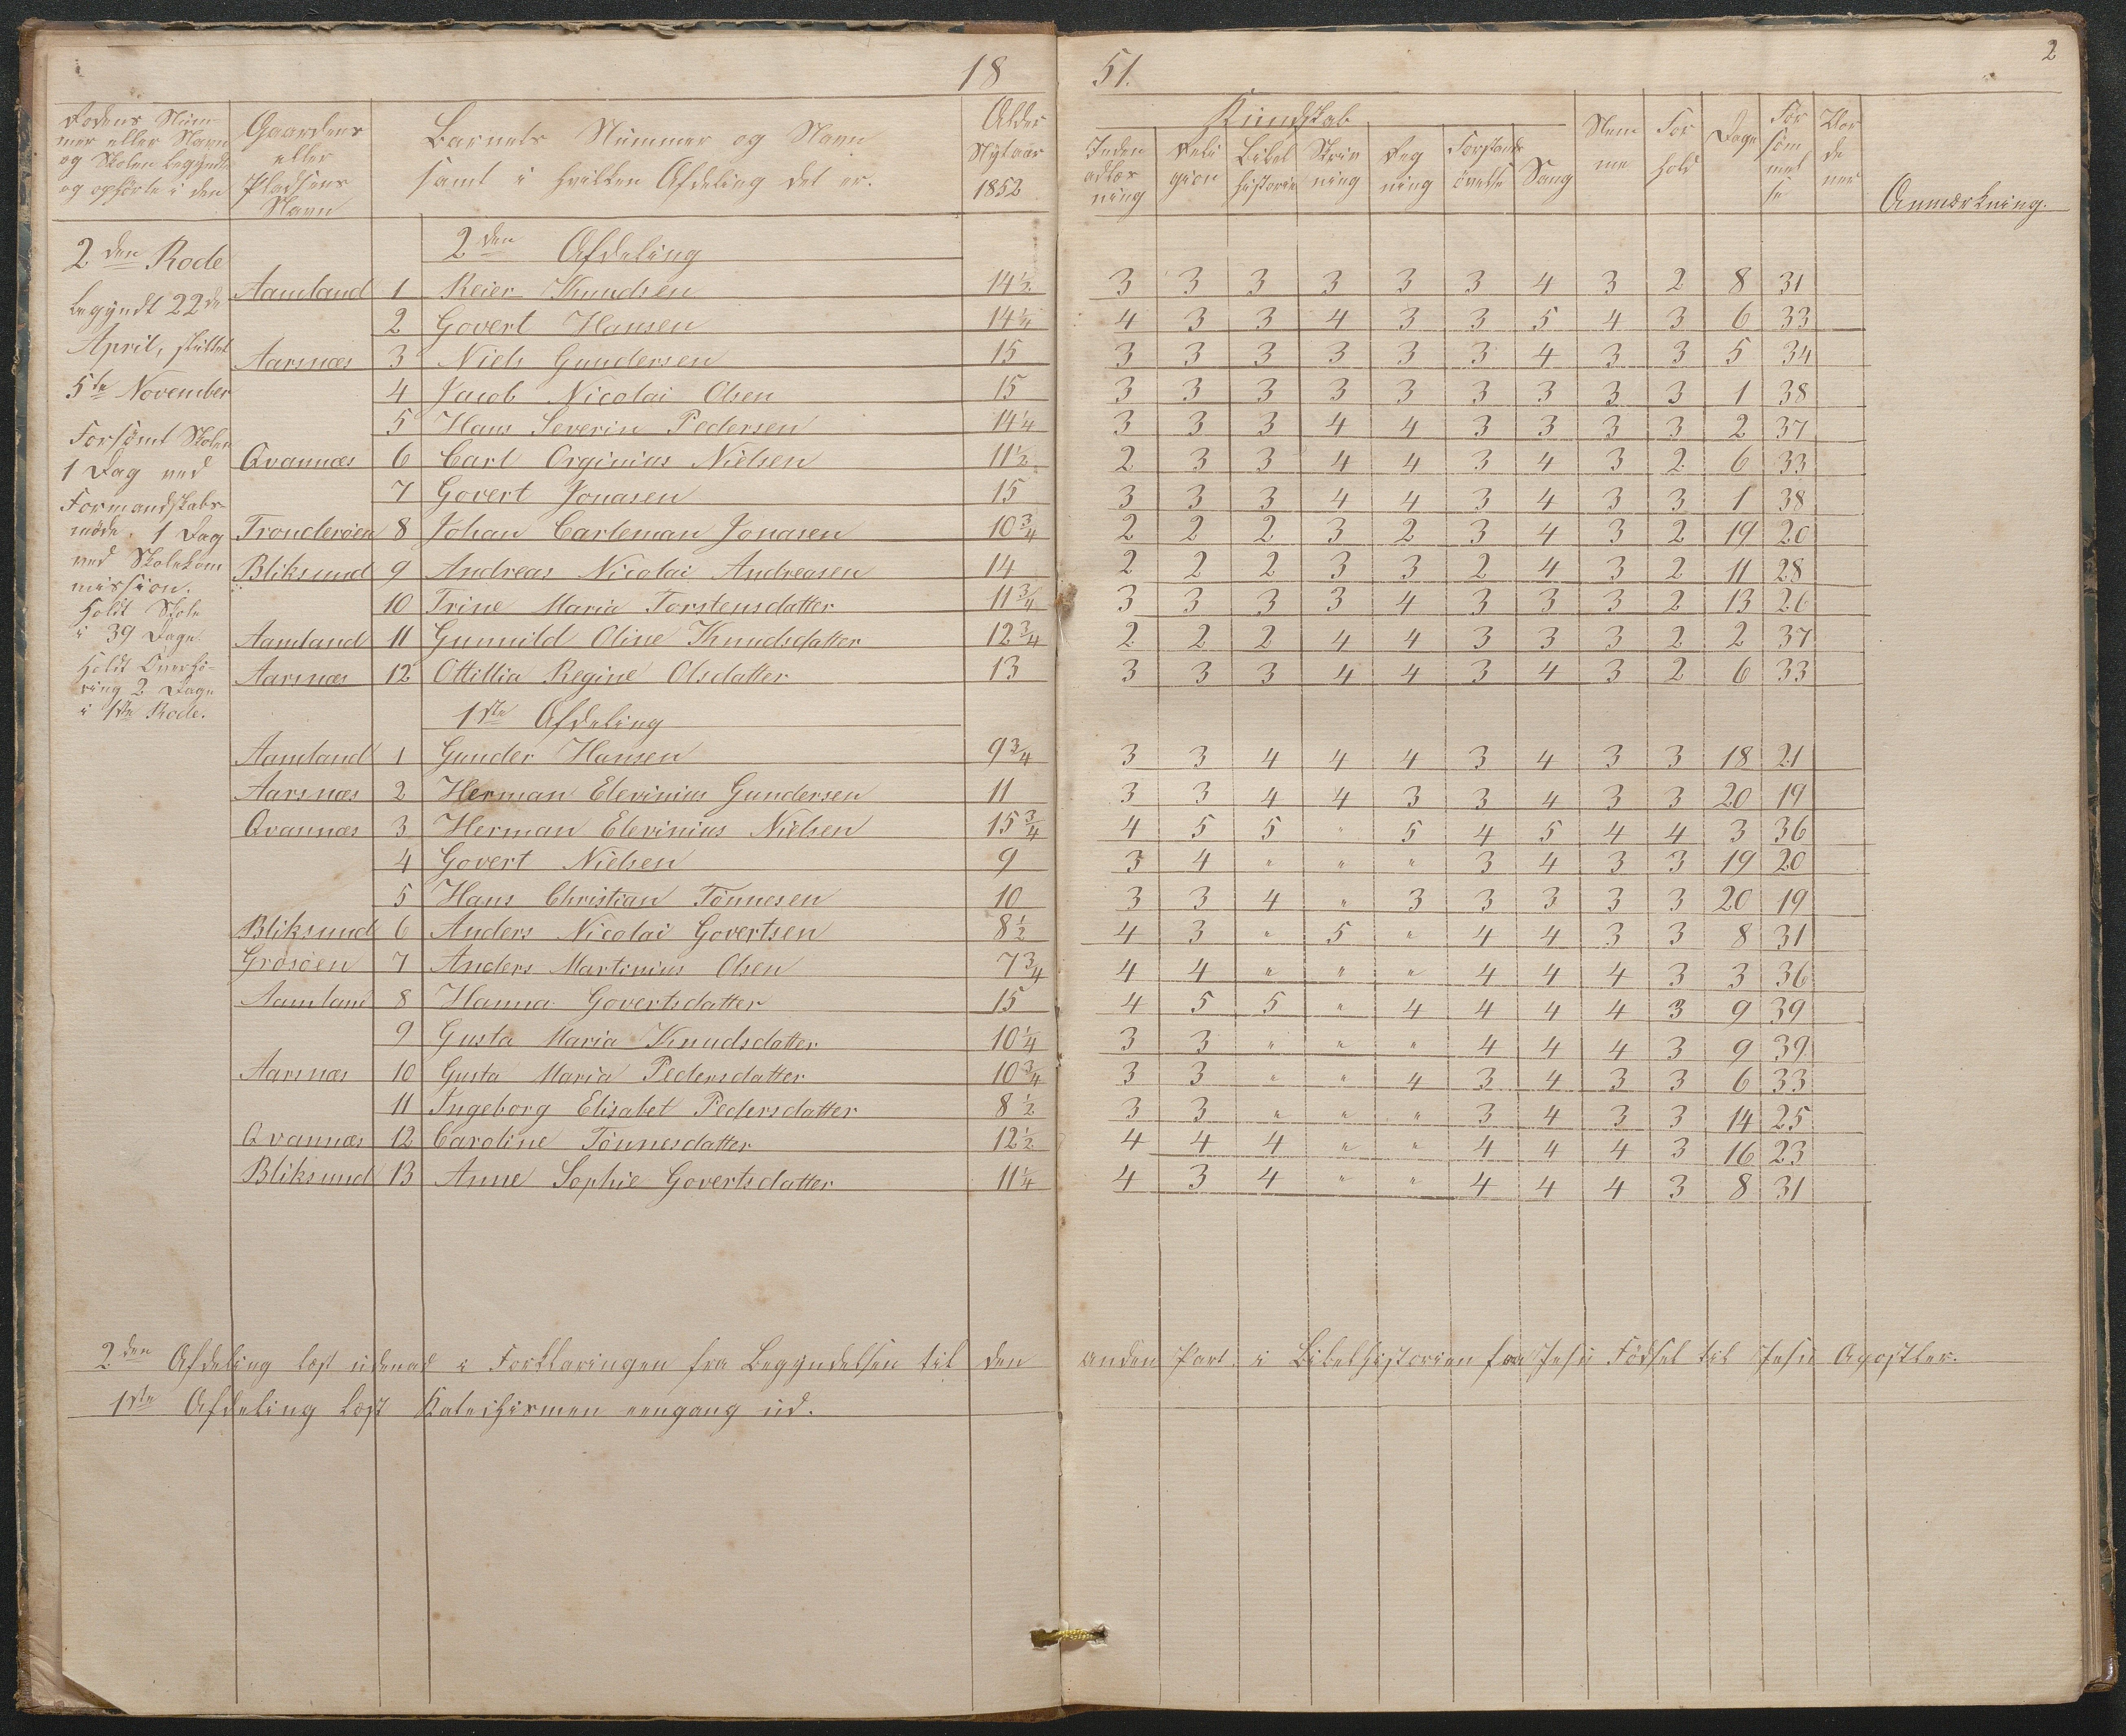 18 51. 2
Rodens Num-
mer eller Navn
og Skolen begyndte
og ophörte i den
Gaardens
eller
Pladsens
Navn
Barnets Nummer og Navn
samt i hvilken Afdeling det er.
Alder
Nytaar
1852
Kundskab
Inden
adlæs
ning
Reli
gion
Bibel
historie
Skriv
ning
Reg
ning
Forstands
övelse
Sang
Nem
me
For
hold
Dage
For
söm
mel
se
Vor
de
ner
Anmærkning.
2den Rode
begyndt 22de
April, sluttet
5te November
Forsömt Skolen
1 Dag ved
Formandskabs-
möde. 1 Dag
ved Skolekom
mission.
Holdt Skole
i 39 Dage.
Holdt Overhö-
ring 2 Dage
i 1ste Rode.
2den Afdeling
Aamland 1 Reier Knudsen 14½ 3 3 3 3 3 3 4 3 2 8 31
2 Govert Hansen 14¼ 4 3 3 4 3 3 5 4 3 6 33
Aarsnæs 3 Niels Gundersen 15 3 3 3 3 3 3 4 3 3 5 34
4 Jacob Nicolai Olsen 15 3 3 3 3 3 3 3 3 3 1 38
5 Hans Severin Pedersen 14¼ 3 3 3 4 4 3 3 3 3 2 37
Qvannæs 6 Carl Orginius Nielsen 11½ 2 3 3 4 4 3 4 3 2 6 33
7 Govert Jonasen 15 3 3 3 4 4 3 4 3 3 1 38
Tronderöen 8 Johan Carleman Jonasen 10¾ 2 2 2 3 2 3 4 3 2 19 20
Bliksund 9 Andreas Nicolai Andreasen 14 2 2 2 3 3 2 4 3 2 11 28
10 Trine Maria Torstensdatter 11¾ 3 3 3 3 4 3 3 3 2 13 26
Aamland 11 Gunnild Oline Knudsdatter 12¾ 2 2 2 4 4 3 3 3 2 2 37
Aarsnæs 12 Ottillia Regine Olsdatter 13 3 3 3 4 4 3 4 3 2 6 33
1ste Afdeling
Aamland 1 Gunder Hansen 9¾ 3 3 4 4 4 3 4 3 3 18 21
Aarsnæs 2 Herman Elevinius Gundersen 11 3 3 4 4 3 3 4 3 3 20 19
Qvannæs 3 Herman Elevinius Nielsen 15¾ 4 5 5 " 5 4 5 4 4 3 36
4 Govert Nielsen 9 3 4 " " " 3 4 3 3 19 20
5 Hans Christian Tönnesen 10 3 3 4 " 3 3 3 3 3 20 19
Bliksund 6 Anders Nicolai Govertsen 8½ 4 3 " 5 " 4 4 3 3 8 31
Grosöen 7 Anders Martinius Olsen 7¾ 4 4 " " " 4 4 4 3 3 36
Aamland 8 Hanna Govertsdatter 15 4 5 5 " 4 4 4 4 3 9 39
9 Gusta Maria Knudsdatter 10¼ 3 3 " " " 4 4 4 3 9 39
Aarsnæs 10 Gusta Maria Pedersdatter 10¾ 3 3 " " 4 3 4 3 3 6 33
11 Ingeborg Elisabet Pedersdatter 8½ 3 3 " " " 3 4 3 3 14 25
Qvannæs 12 Caroline Tönnesdatter 12½ 4 4 4 " " 4 4 4 3 16 23
Bliksund 13 Anne Sophie Govertsdatter 11¼ 4 3 4 " " 4 4 4 3 8 31
2den Afdeling læst udenad i Forklaringen fra Begyndelsen til den anden Part. i Bibelhistorien fra Jesu Födsel til Jesu Apostler.
1ste Afdeling læst Katechismen eengang ud.